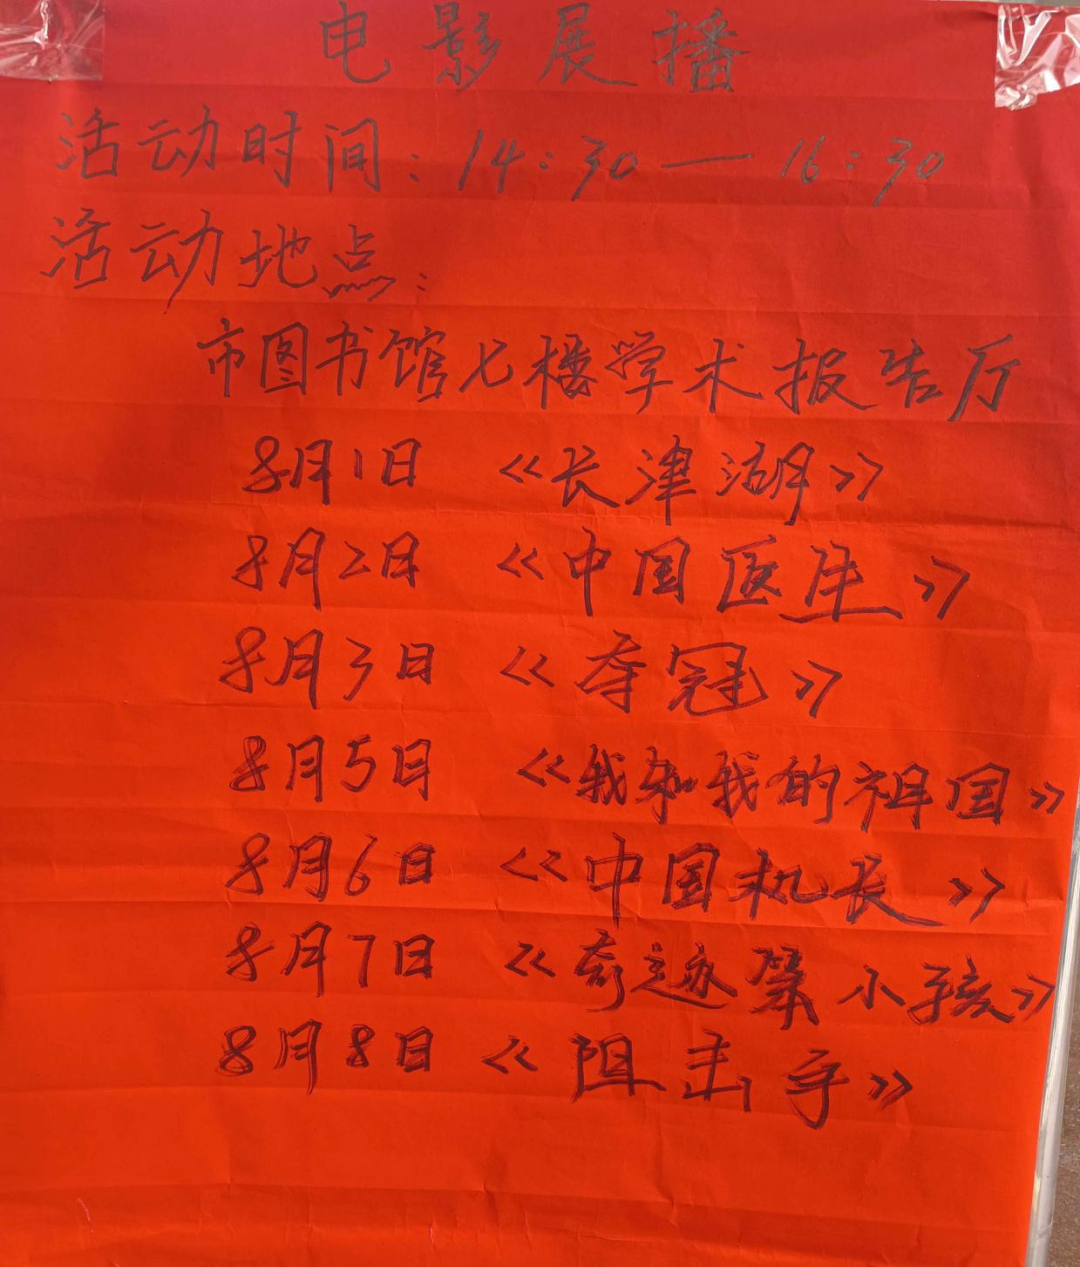 电影展播
活动时间：14：30 — 16：30
活动地点：
市图书馆七楼学术报告厅
8月1日 《长津湖》
8月2日 《中国医生》
8月3日 《夺冠》
8月5日 《我和我的祖国》
8月6日 《中国机长》
8月7日 《奇迹笨小孩》
8月8日 《阻击手》